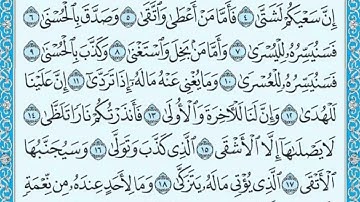 إِنَّ سَعْيَكُمْ لَشَتَّىٰ ٤ فَأَمَّا مَنْ أَعْطَىٰ وَاتَّقَىٰ ٥ وَصَدَّقَ بِالْحُسْنَىٰ ٦
فَسَنُيَسِّرُهُ لِلْيُسْرَىٰ ٧ وَأَمَّا مَنْ بَخِلَ وَاسْتَغْنَىٰ ٨ وَكَذَّبَ بِالْحُسْنَىٰ ٩
فَسَنُيَسِّرُهُ لِلْعُسْرَىٰ ١٠ وَمَا يُغْنِي عَنْهُ مَالُهُ إِذَا تَرَدَّىٰ ١١ إِنَّ عَلَيْنَا
لَلْهُدَىٰ ١٢ وَإِنَّ لَنَا لَلْآخِرَةَ وَالْأُولَىٰ ١٣ فَأَنْذَرْتُكُمْ نَارًا تَلَظَّىٰ ١٤
لَا يَصْلَاهَا إِلَّا الْأَشْقَى ١٥ الَّذِي كَذَّبَ وَتَوَلَّىٰ ١٦ وَسَيُجَنَّبُهَا
الْأَتْقَى ١٧ الَّذِي يُؤْتِي مَالَهُ يَتَزَكَّىٰ ١٨ وَمَا لِأَحَدٍ عِنْدَهُ مِنْ نِعْمَةٍ